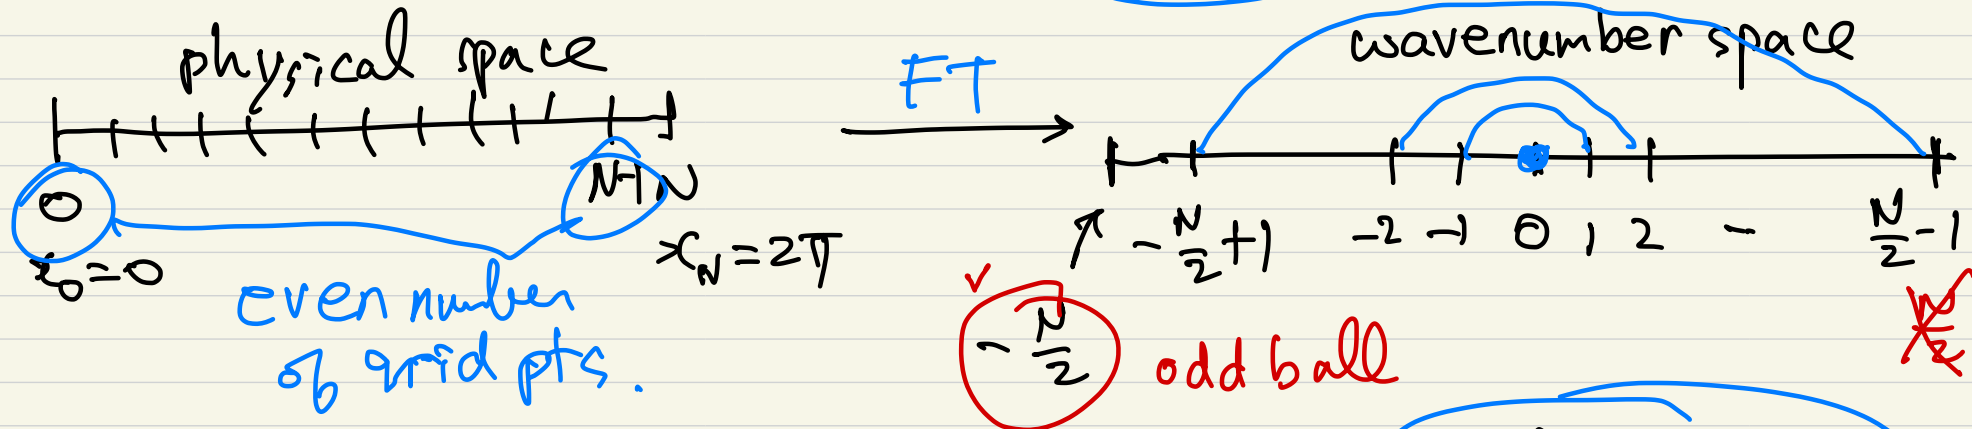 physical space
FT
wavenumber space
0
N-1 N
x₀=0
x_N=2π
even number
of grid pts.
-N/2+1 -2 -1 0 1 2 - N/2-1
✓
-N/2 odd ball
N/2